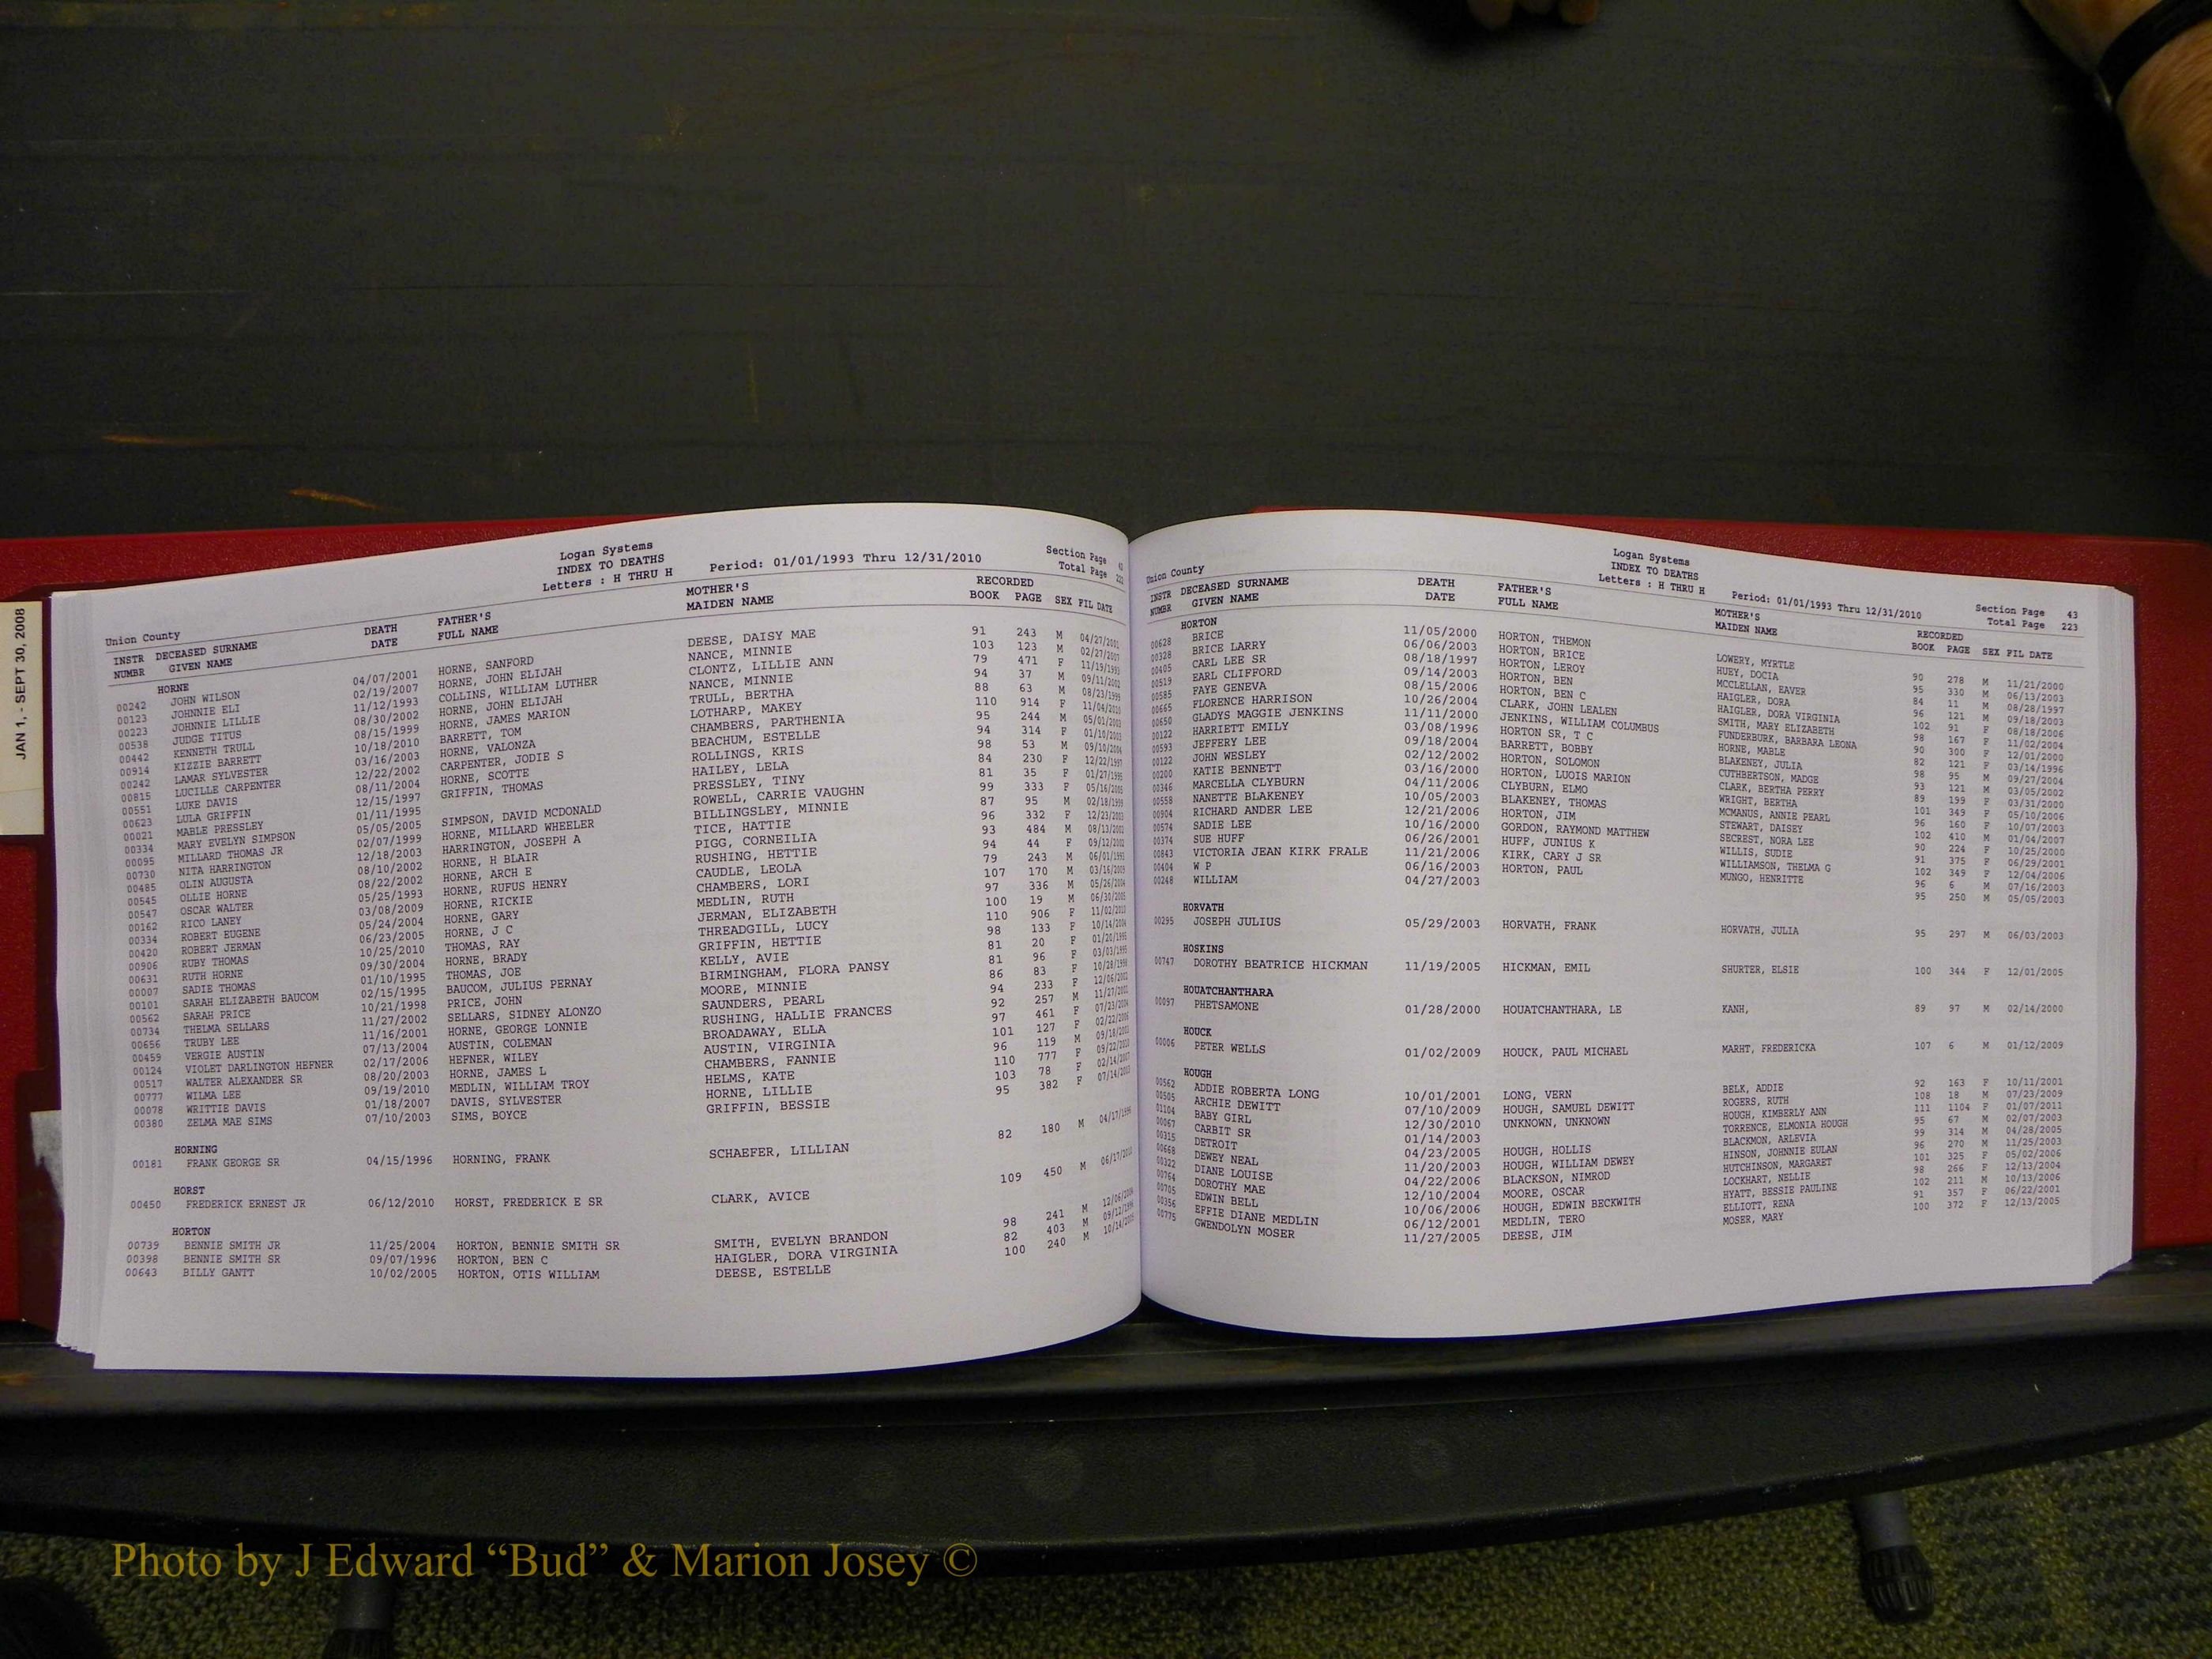 JAN 1, - SEPT 30, 2008
Logan Systems
INDEX TO DEATHS
Union County Letters : H THRU H Period: 01/01/1993 Thru 12/31/2010 Section Page Total Page
INSTR DECEASED SURNAME DEATH FATHER'S MOTHER'S RECORDED
NUMBR GIVEN NAME DATE FULL NAME MAIDEN NAME BOOK PAGE SEX FIL DATE
HORNE
00242 JOHN WILSON 04/07/2001 HORNE, SANFORD DEESE, DAISY MAE 91 243 M 04/27/2001
00123 JOHNNIE ELI 02/19/2007 HORNE, JOHN ELIJAH NANCE, MINNIE 103 123 M 02/27/2007
00223 JOHNNIE LILLIE 11/12/1993 COLLINS, WILLIAM LUTHER CLONTZ, LILLIE ANN 79 471 F 11/19/1993
00538 JUDGE TITUS 08/30/2002 HORNE, JOHN ELIJAH NANCE, MINNIE 94 37 M 09/11/2002
00442 KENNETH TRULL 08/15/1999 HORNE, JAMES MARION TRULL, BERTHA 88 63 M 08/23/1999
00914 KIZZIE BARRETT 10/18/2010 BARRETT, TOM LOTHARP, MAKEY 110 914 F 11/04/2010
00242 LAMAR SYLVESTER 03/16/2003 HORNE, VALONZA CHAMBERS, PARTHENIA 95 244 M 05/01/2003
00815 LUCILLE CARPENTER 12/22/2002 CARPENTER, JODIE S BEACHUM, ESTELLE 94 314 F 01/10/2003
00551 LUKE DAVIS 08/11/2004 HORNE, SCOTTE ROLLINGS, KRIS 98 53 M 09/10/2004
00623 LULA GRIFFIN 12/15/1997 GRIFFIN, THOMAS HAILEY, LELA 84 230 F 12/22/1997
00021 MABLE PRESSLEY 01/11/1995 PRESSLEY, TINY 81 35 F 01/27/1995
00334 MARY EVELYN SIMPSON 05/05/2005 SIMPSON, DAVID MCDONALD ROWELL, CARRIE VAUGHN 99 333 F 05/16/2005
00095 MILLARD THOMAS JR 02/07/1999 HORNE, MILLARD WHEELER BILLINGSLEY, MINNIE 87 95 M 02/18/1999
00730 NITA HARRINGTON 12/18/2003 HARRINGTON, JOSEPH A TICE, HATTIE 96 332 F 12/23/2003
00485 OLIN AUGUSTA 08/10/2002 HORNE, H BLAIR PIGG, CORNEILIA 93 484 M 08/13/2002
00545 OLLIE HORNE 08/22/2002 HORNE, ARCH E RUSHING, HETTIE 94 44 F 09/12/2002
00547 OSCAR WALTER 05/25/1993 HORNE, RUFUS HENRY CAUDLE, LEOLA 79 243 M 06/01/1993
00162 RICO LANEY 03/08/2009 HORNE, RICKIE CHAMBERS, LORI 107 170 M 03/16/2009
00334 ROBERT EUGENE 05/24/2004 HORNE, GARY MEDLIN, RUTH 97 336 M 05/26/2004
00420 ROBERT JERMAN 06/23/2005 HORNE, J C JERMAN, ELIZABETH 100 19 M 06/30/2005
00906 RUBY THOMAS 10/25/2010 THOMAS, RAY THREADGILL, LUCY 110 906 F 11/02/2010
00631 RUTH HORNE 09/30/2004 HORNE, BRADY GRIFFIN, HETTIE 98 133 F 10/14/2004
00007 SADIE THOMAS 01/10/1995 THOMAS, JOE KELLY, AVIE 81 20 F 01/20/1995
00101 SARAH ELIZABETH BAUCOM 02/15/1995 BAUCOM, JULIUS PERNAY BIRMINGHAM, FLORA PANSY 81 96 F 03/03/1995
00562 SARAH PRICE 10/21/1998 PRICE, JOHN MOORE, MINNIE 86 83 F 10/28/1998
00734 THELMA SELLARS 11/27/2002 SELLARS, SIDNEY ALONZO SAUNDERS, PEARL 94 233 F 12/06/2002
00656 TRUBY LEE 11/16/2001 HORNE, GEORGE LONNIE RUSHING, HALLIE FRANCES 92 257 M 11/27/2001
00459 VERGIE AUSTIN 07/13/2004 AUSTIN, COLEMAN BROADAWAY, ELLA 97 461 F 07/23/2004
00124 VIOLET DARLINGTON HEFNER 02/17/2006 HEFNER, WILEY AUSTIN, VIRGINIA 101 127 F 02/22/2006
00517 WALTER ALEXANDER SR 08/20/2003 HORNE, JAMES L CHAMBERS, FANNIE 96 119 M 09/18/2003
00777 WILMA LEE 09/19/2010 MEDLIN, WILLIAM TROY HELMS, KATE 110 777 F 09/22/2010
00078 WRITTIE DAVIS 01/18/2007 DAVIS, SYLVESTER HORNE, LILLIE 103 78 F 02/14/2007
00380 ZELMA MAE SIMS 07/10/2003 SIMS, BOYCE GRIFFIN, BESSIE 95 382 F 07/14/2003
HORNING
00181 FRANK GEORGE SR 04/15/1996 HORNING, FRANK SCHAEFER, LILLIAN 82 180 M 04/17/1996
HORST
00450 FREDERICK ERNEST JR 06/12/2010 HORST, FREDERICK E SR CLARK, AVICE 109 450 M 06/17/2010
HORTON
00739 BENNIE SMITH JR 11/25/2004 HORTON, BENNIE SMITH SR SMITH, EVELYN BRANDON 98 241 M 12/06/2004
00398 BENNIE SMITH SR 09/07/1996 HORTON, BEN C HAIGLER, DORA VIRGINIA 82 403 M 09/12/1996
00643 BILLY GANTT 10/02/2005 HORTON, OTIS WILLIAM DEESE, ESTELLE 100 240 M 10/14/2005
Logan Systems
INDEX TO DEATHS
Union County Letters : H THRU H Period: 01/01/1993 Thru 12/31/2010 Section Page 43
Total Page 223
INSTR DECEASED SURNAME DEATH FATHER'S MOTHER'S RECORDED
NUMBR GIVEN NAME DATE FULL NAME MAIDEN NAME BOOK PAGE SEX FIL DATE
HORTON
00628 BRICE 11/05/2000 HORTON, THEMON LOWERY, MYRTLE 90 278 M 11/21/2000
00328 BRICE LARRY 06/06/2003 HORTON, BRICE HUEY, DOCIA 95 330 M 06/13/2003
00405 CARL LEE SR 08/18/1997 HORTON, LEROY MCCLELLAN, EAVER 84 11 M 08/28/1997
00519 EARL CLIFFORD 09/14/2003 HORTON, BEN HAIGLER, DORA 96 121 M 09/18/2003
00585 FAYE GENEVA 08/15/2006 HORTON, BEN C HAIGLER, DORA VIRGINIA 102 91 F 08/18/2006
00665 FLORENCE HARRISON 10/26/2004 CLARK, JOHN LEALEN SMITH, MARY ELIZABETH 98 167 F 11/02/2004
00650 GLADYS MAGGIE JENKINS 11/11/2000 JENKINS, WILLIAM COLUMBUS FUNDERBURK, BARBARA LEONA 90 300 F 12/01/2000
00122 HARRIETT EMILY 03/08/1996 HORTON SR, T C HORNE, MABLE 82 121 F 03/14/1996
00593 JEFFERY LEE 09/18/2004 BARRETT, BOBBY BLAKENEY, JULIA 98 95 M 09/27/2004
00122 JOHN WESLEY 02/12/2002 HORTON, SOLOMON CUTHBERTSON, MADGE 93 121 M 03/05/2002
00200 KATIE BENNETT 03/16/2000 HORTON, LUOIS MARION CLARK, BERTHA PERRY 89 199 F 03/31/2000
00346 MARCELLA CLYBURN 04/11/2006 CLYBURN, ELMO WRIGHT, BERTHA 101 349 F 05/10/2006
00558 NANETTE BLAKENEY 10/05/2003 BLAKENEY, THOMAS MCMANUS, ANNIE PEARL 96 160 F 10/07/2003
00904 RICHARD ANDER LEE 12/21/2006 HORTON, JIM STEWART, DAISEY 102 410 M 01/04/2007
00574 SADIE LEE 10/16/2000 GORDON, RAYMOND MATTHEW SECREST, NORA LEE 90 224 F 10/25/2000
00374 SUE HUFF 06/26/2001 HUFF, JUNIUS K WILLIS, SUDIE 91 375 F 06/29/2001
00843 VICTORIA JEAN KIRK FRALE 11/21/2006 KIRK, CARY J SR WILLIAMSON, THELMA G 102 349 F 12/04/2006
00404 W P 06/16/2003 HORTON, PAUL MUNGO, HENRITTE 96 6 M 07/16/2003
00248 WILLIAM 04/27/2003 95 250 M 05/05/2003
HORVATH
00295 JOSEPH JULIUS 05/29/2003 HORVATH, FRANK HORVATH, JULIA 95 297 M 06/03/2003
HOSKINS
00747 DOROTHY BEATRICE HICKMAN 11/19/2005 HICKMAN, EMIL SHURTER, ELSIE 100 344 F 12/01/2005
HOUATCHANTHARA
00097 PHETSAMONE 01/28/2000 HOUATCHANTHARA, LE KANH, 89 97 M 02/14/2000
HOUCK
00006 PETER WELLS 01/02/2009 HOUCK, PAUL MICHAEL MARHT, FREDERICKA 107 6 M 01/12/2009
HOUGH
00562 ADDIE ROBERTA LONG 10/01/2001 LONG, VERN BELK, ADDIE 92 163 F 10/11/2001
00505 ARCHIE DEWITT 07/10/2009 HOUGH, SAMUEL DEWITT ROGERS, RUTH 108 18 M 07/23/2009
01104 BABY GIRL 12/30/2010 UNKNOWN, UNKNOWN HOUGH, KIMBERLY ANN 111 1104 F 01/07/2011
00067 CARBIT SR 01/14/2003 TORRENCE, ELMONIA HOUGH 95 67 M 02/07/2003
00315 DETROIT 04/23/2005 HOUGH, HOLLIS BLACKMON, ARLEVIA 99 314 M 04/28/2005
00668 DEWEY NEAL 11/20/2003 HOUGH, WILLIAM DEWEY HINSON, JOHNNIE EULAN 96 270 M 11/25/2003
00322 DIANE LOUISE 04/22/2006 BLACKSON, NIMROD HUTCHINSON, MARGARET 101 325 F 05/02/2006
00764 DOROTHY MAE 12/10/2004 MOORE, OSCAR LOCKHART, NELLIE 98 266 F 12/13/2004
00705 EDWIN BELL 10/06/2006 HOUGH, EDWIN BECKWITH HYATT, BESSIE PAULINE 102 211 M 10/13/2006
00356 EFFIE DIANE MEDLIN 06/12/2001 MEDLIN, TERO ELLIOTT, RENA 91 357 F 06/22/2001
00775 GWENDOLYN MOSER 11/27/2005 DEESE, JIM MOSER, MARY 100 372 F 12/13/2005
Photo by J Edward “Bud” & Marion Josey ©